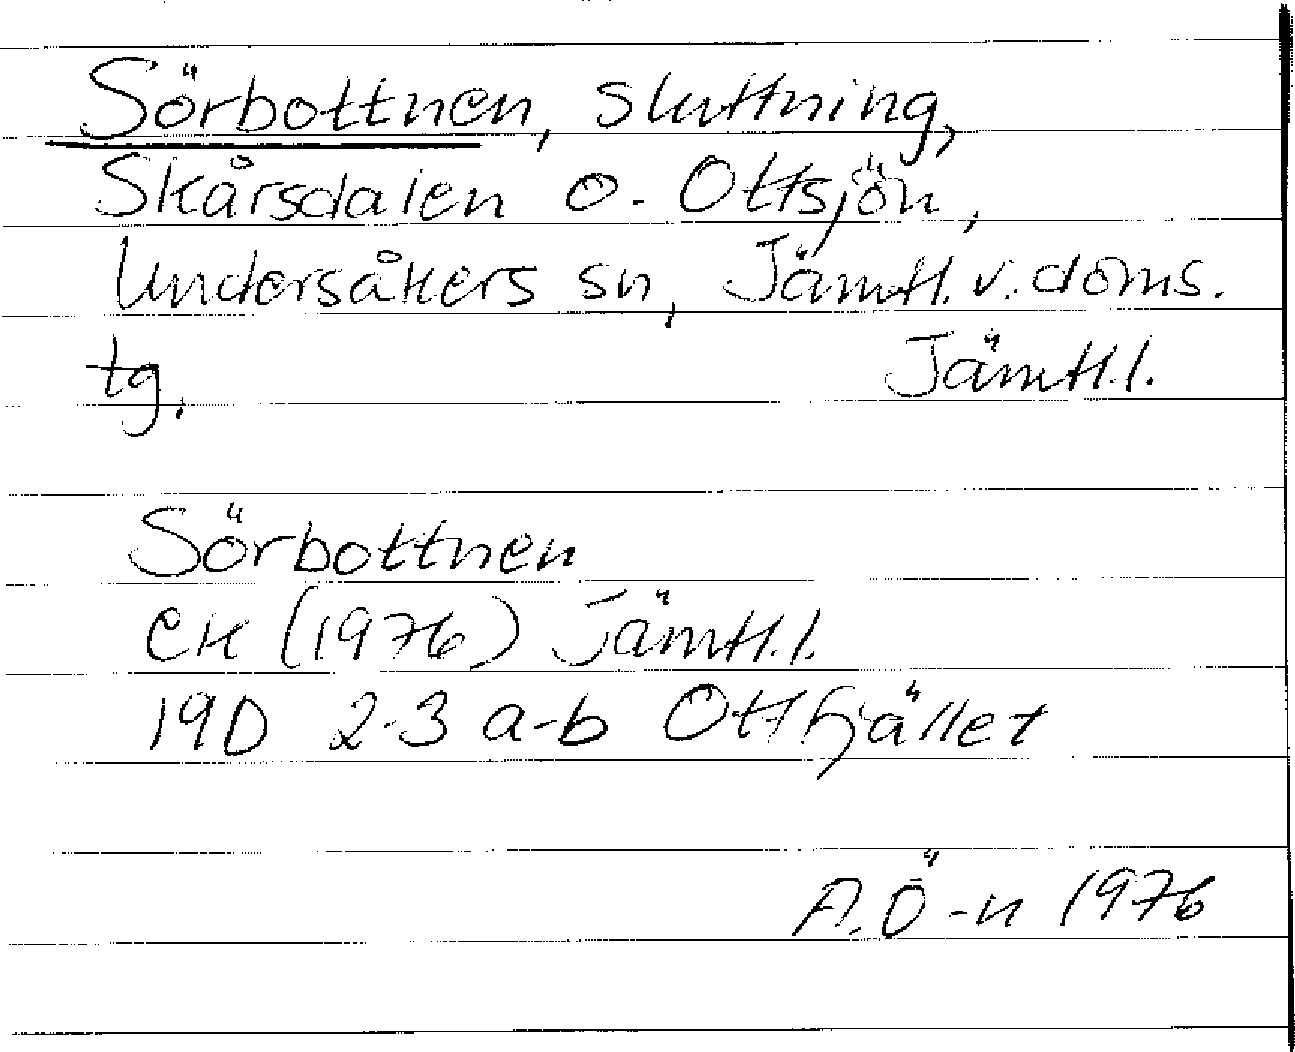 Sörbottnen, sluttning,
Skårsdalen o. Ottsjön,
Undersåkers sn, Jämtl. v. doms.
tg. Jämtl. l.
Sörbottnen
EK (1976) Jämtl. l.
19D 2-3 a-b Ottfjället
A. Ö-n 1976